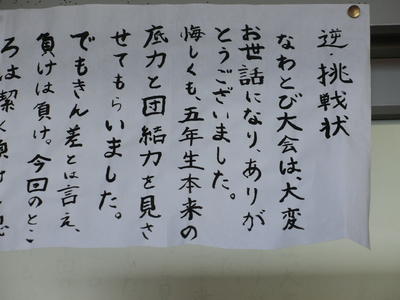 逆・挑戦状
なわとび大会は、大変
お世話になり、ありが
とうございました。
悔しくも、五年生本来の
底力と団結力を見さ
せてもらいました。
でもきん差とは言え、
負けは負け。今回のとこ
ろは潔く負け